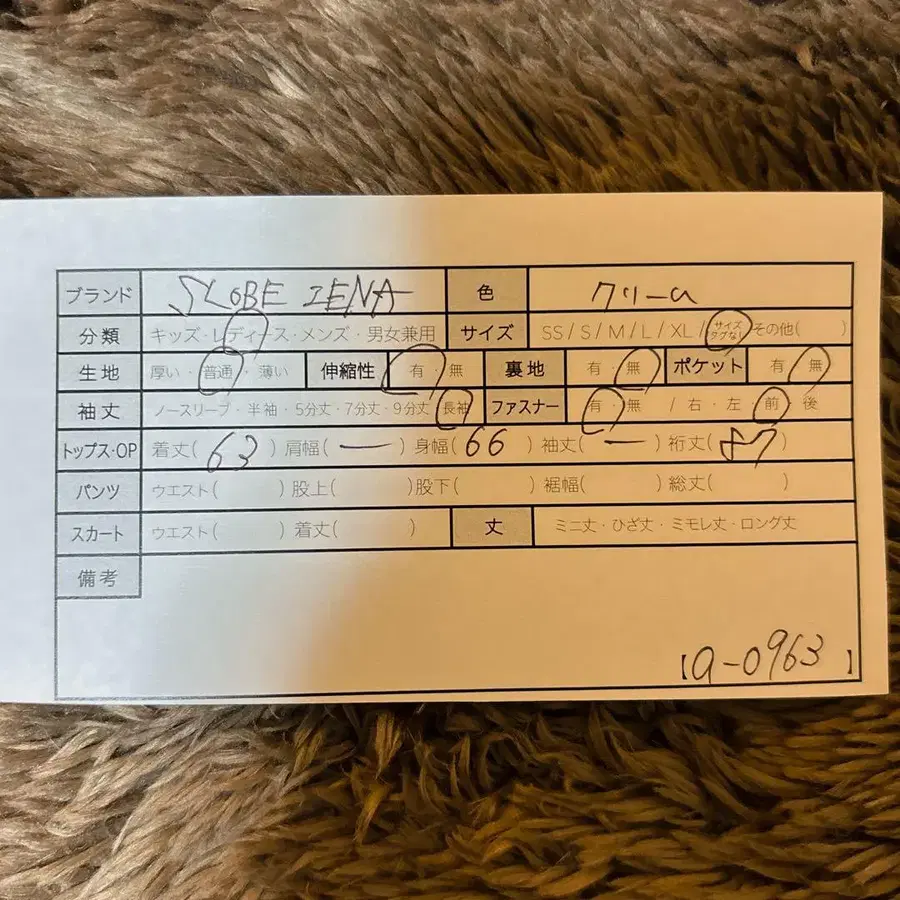 ブランド SLOBE IENA 色 クリーム
分類 キッズ・レディース・メンズ・男女兼用 サイズ SS / S / M / L / XL / サイズタグなし その他( )
生地 厚い・普通・薄い 伸縮性 有・無 裏地 有・無 ポケット 有・無
袖丈 ノースリーブ・半袖・5分丈・7分丈・9分丈・長袖 ファスナー 有・無 / 右・左・前・後
トップス・OP 着丈(63) 肩幅(ー) 身幅(66) 袖丈(ー) 裄丈(87)
パンツ ウエスト( ) 股上( ) 股下( ) 裾幅( ) 総丈( )
スカート ウエスト( ) 着丈( ) 丈 ミニ丈・ひざ丈・ミモレ丈・ロング丈
備考
【a-0963】